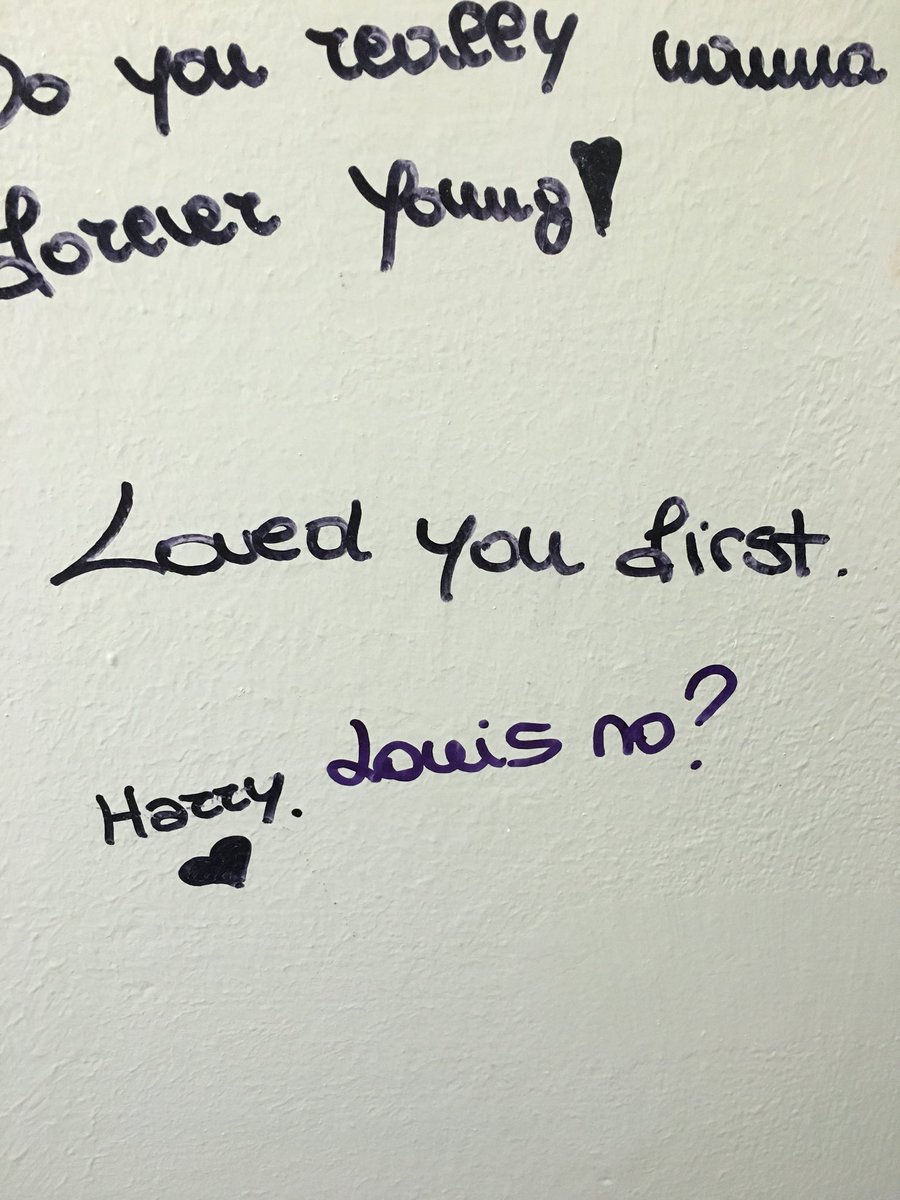 Do you really wanna
forever Young
Loved you first.
Harry. Louis no?